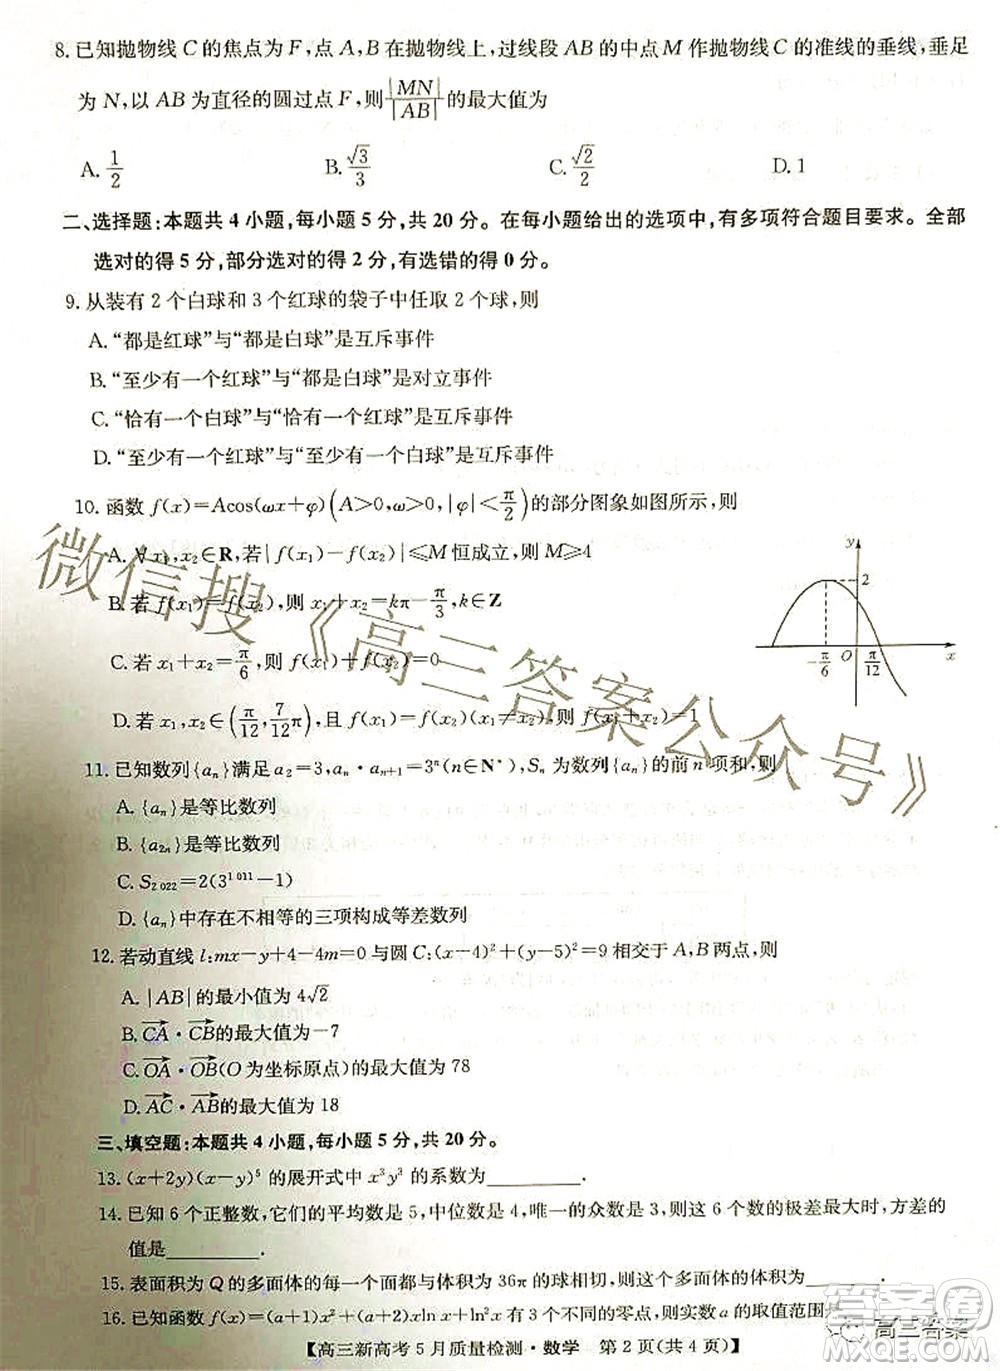 8.已知抛物线 C 的焦点为 F,点 A,B 在抛物线上,过线段 AB 的中点 M 作抛物线 C 的准线的垂线,垂足
为 N,以 AB 为直径的圆过点 F,则|MN|/|AB|的最大值为
A.1/2 B.√3/3 C.√2/2 D.1
二、选择题:本题共 4 小题,每小题 5 分,共 20 分。在每小题给出的选项中,有多项符合题目要求。全部
选对的得 5 分,部分选对的得 2 分,有选错的得 0 分。
9.从装有 2 个白球和 3 个红球的袋子中任取 2 个球,则
A.“都是红球”与“都是白球”是互斥事件
B.“至少有一个红球”与“都是白球”是对立事件
C.“恰有一个白球”与“恰有一个红球”是互斥事件
D.“至少有一个红球”与“至少有一个白球”是互斥事件
10.函数 f(x)=Acos(ωx+φ)(A>0,ω>0,|φ|<π/2)的部分图象如图所示,则
A.∀x₁,x₂∈R,若|f(x₁)-f(x₂)|≤M 恒成立,则 M≥4
B.若 f(x₁)=f(x₂),则 x₁+x₂=kπ-π/3,k∈Z
C.若 x₁+x₂=π/6,则 f(x₁)+f(x₂)=0
D.若 x₁,x₂∈(π/12,7/12π),且 f(x₁)=f(x₂)(x₁≠x₂),则 f(x₁+x₂)=1
y
2
-π/6 O π/12 x
11.已知数列{aₙ}满足 a₂=3,aₙ·aₙ₊₁=3ⁿ(n∈N*),Sₙ 为数列{aₙ}的前 n 项和,则
A.{aₙ}是等比数列
B.{a₂ₙ}是等比数列
C.S₂₀₂₂=2(3¹⁰¹¹-1)
D.{aₙ}中存在不相等的三项构成等差数列
12.若动直线 l:mx-y+4-4m=0 与圆 C:(x-4)²+(y-5)²=9 相交于 A,B 两点,则
A.|AB|的最小值为 4√2
B.CA·CB的最大值为-7
C.OA·OB(O 为坐标原点)的最大值为 78
D.AC·AB的最大值为 18
三、填空题:本题共 4 小题,每小题 5 分,共 20 分。
13.(x+2y)(x-y)⁵ 的展开式中 x³y³ 的系数为________.
14.已知 6 个正整数,它们的平均数是 5,中位数是 4,唯一的众数是 3,则这 6 个数的极差最大时,方差的
值是________.
15.表面积为 Q 的多面体的每一个面都与体积为 36π 的球相切,则这个多面体的体积为________.
16.已知函数 f(x)=(a+2)x²+(a+2)xln x+ln²x 有三个不同的零点,则实数 a 的取值范围是
【高三新高考 5 月质量检测·数学 第 2 页(共 4 页)】
微信搜《高三答案公众号》
答案圈
高三答案
MXQE.COM